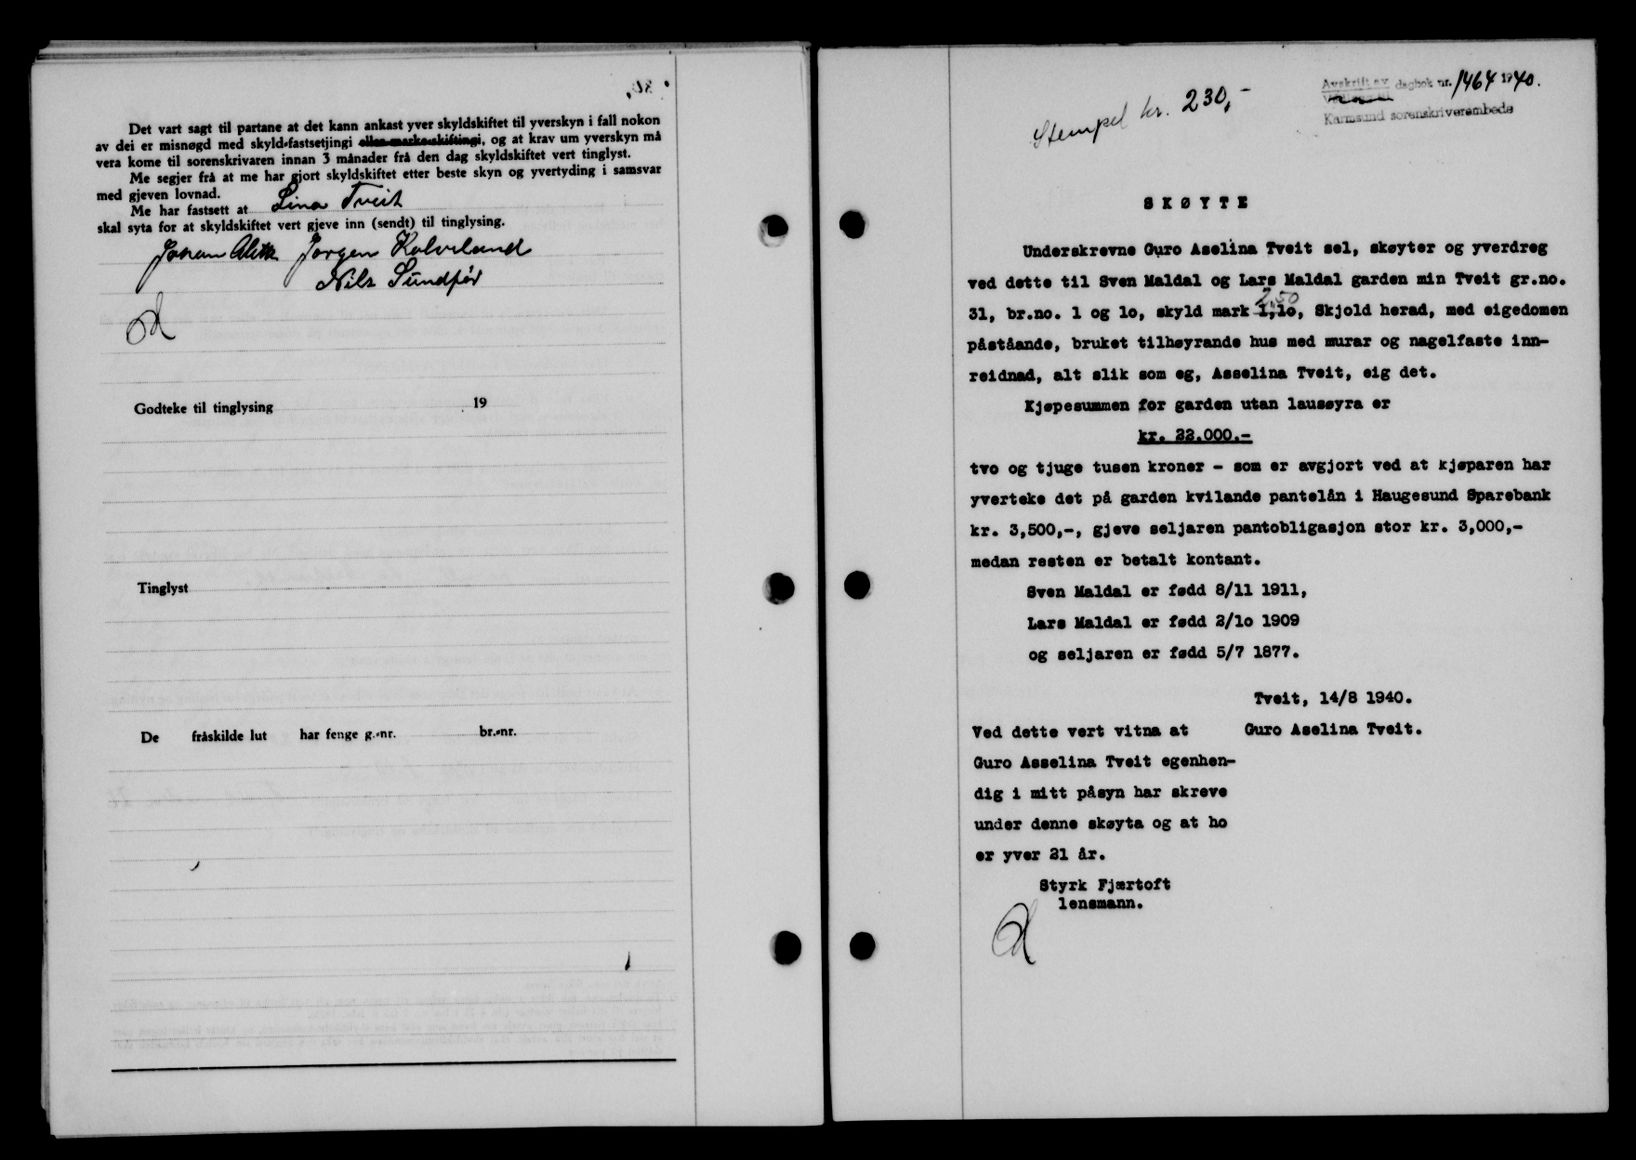 Det vart sagt til partane at det kann ankast yver skyldskiftet til yverskyn i fall nokon
av dei er misnøgd med skyld-fastsetjingi eller marke-skiftingi, og at krav um yverskyn må
vera kome til sorenskrivaren innan 3 månader frå den dag skyldskiftet vert tinglyst.
Me segjer frå at me har gjort skyldskiftet etter beste skyn og yvertyding i samsvar
med gjeven lovnad.
Me har fastsett at Lina Tveit
skal syta for at skyldskiftet vert gjeve inn (sendt) til tinglysing.
Johan Jørgen Kolveland
Nils Sundfør
Godteke til tinglysing 19
Tinglyst
De fråskilde lut har fenge g.-nr. br.-nr.
Stempel kr. 230,-
Avskrift av dagbok nr. 1464 1940.
Karmsund sorenskriverembede
SKØYTE
Underskrevne Guro Aselina Tveit sel, skøyter og yverdreg
ved dette til Sven Maldal og Lars Maldal garden min Tveit gr.no.
2,50
31, br.no. 1 og 1o, skyld mark 1,1o, Skjold herad, med eigedomen
påståande, bruket tilhøyrande hus med murar og nagelfaste inn-
reidnad, alt slik som eg, Asselina Tveit, eig det.
Kjøpesummen for garden utan lausøyra er
kr. 22.000.-
tvo og tjuge tusen kroner - som er avgjort ved at kjøparen har
yverteke det på garden kvilande pantelån i Haugesund Sparebank
kr. 3,500,-, gjeve seljaren pantobligasjon stor kr. 3,000,-
medan resten er betalt kontant.
Sven Maldal er fødd 8/11 1911,
Lars Maldal er fødd 2/1o 1909
og seljaren er fødd 5/7 1877.
Tveit, 14/8 1940.
Ved dette vert vitna at Guro Aselina Tveit.
Guro Asselina Tveit egenhen-
dig i mitt påsyn har skreve
under denne skøyta og at ho
er yver 21 år.
Styrk Fjærtoft
lensmann.